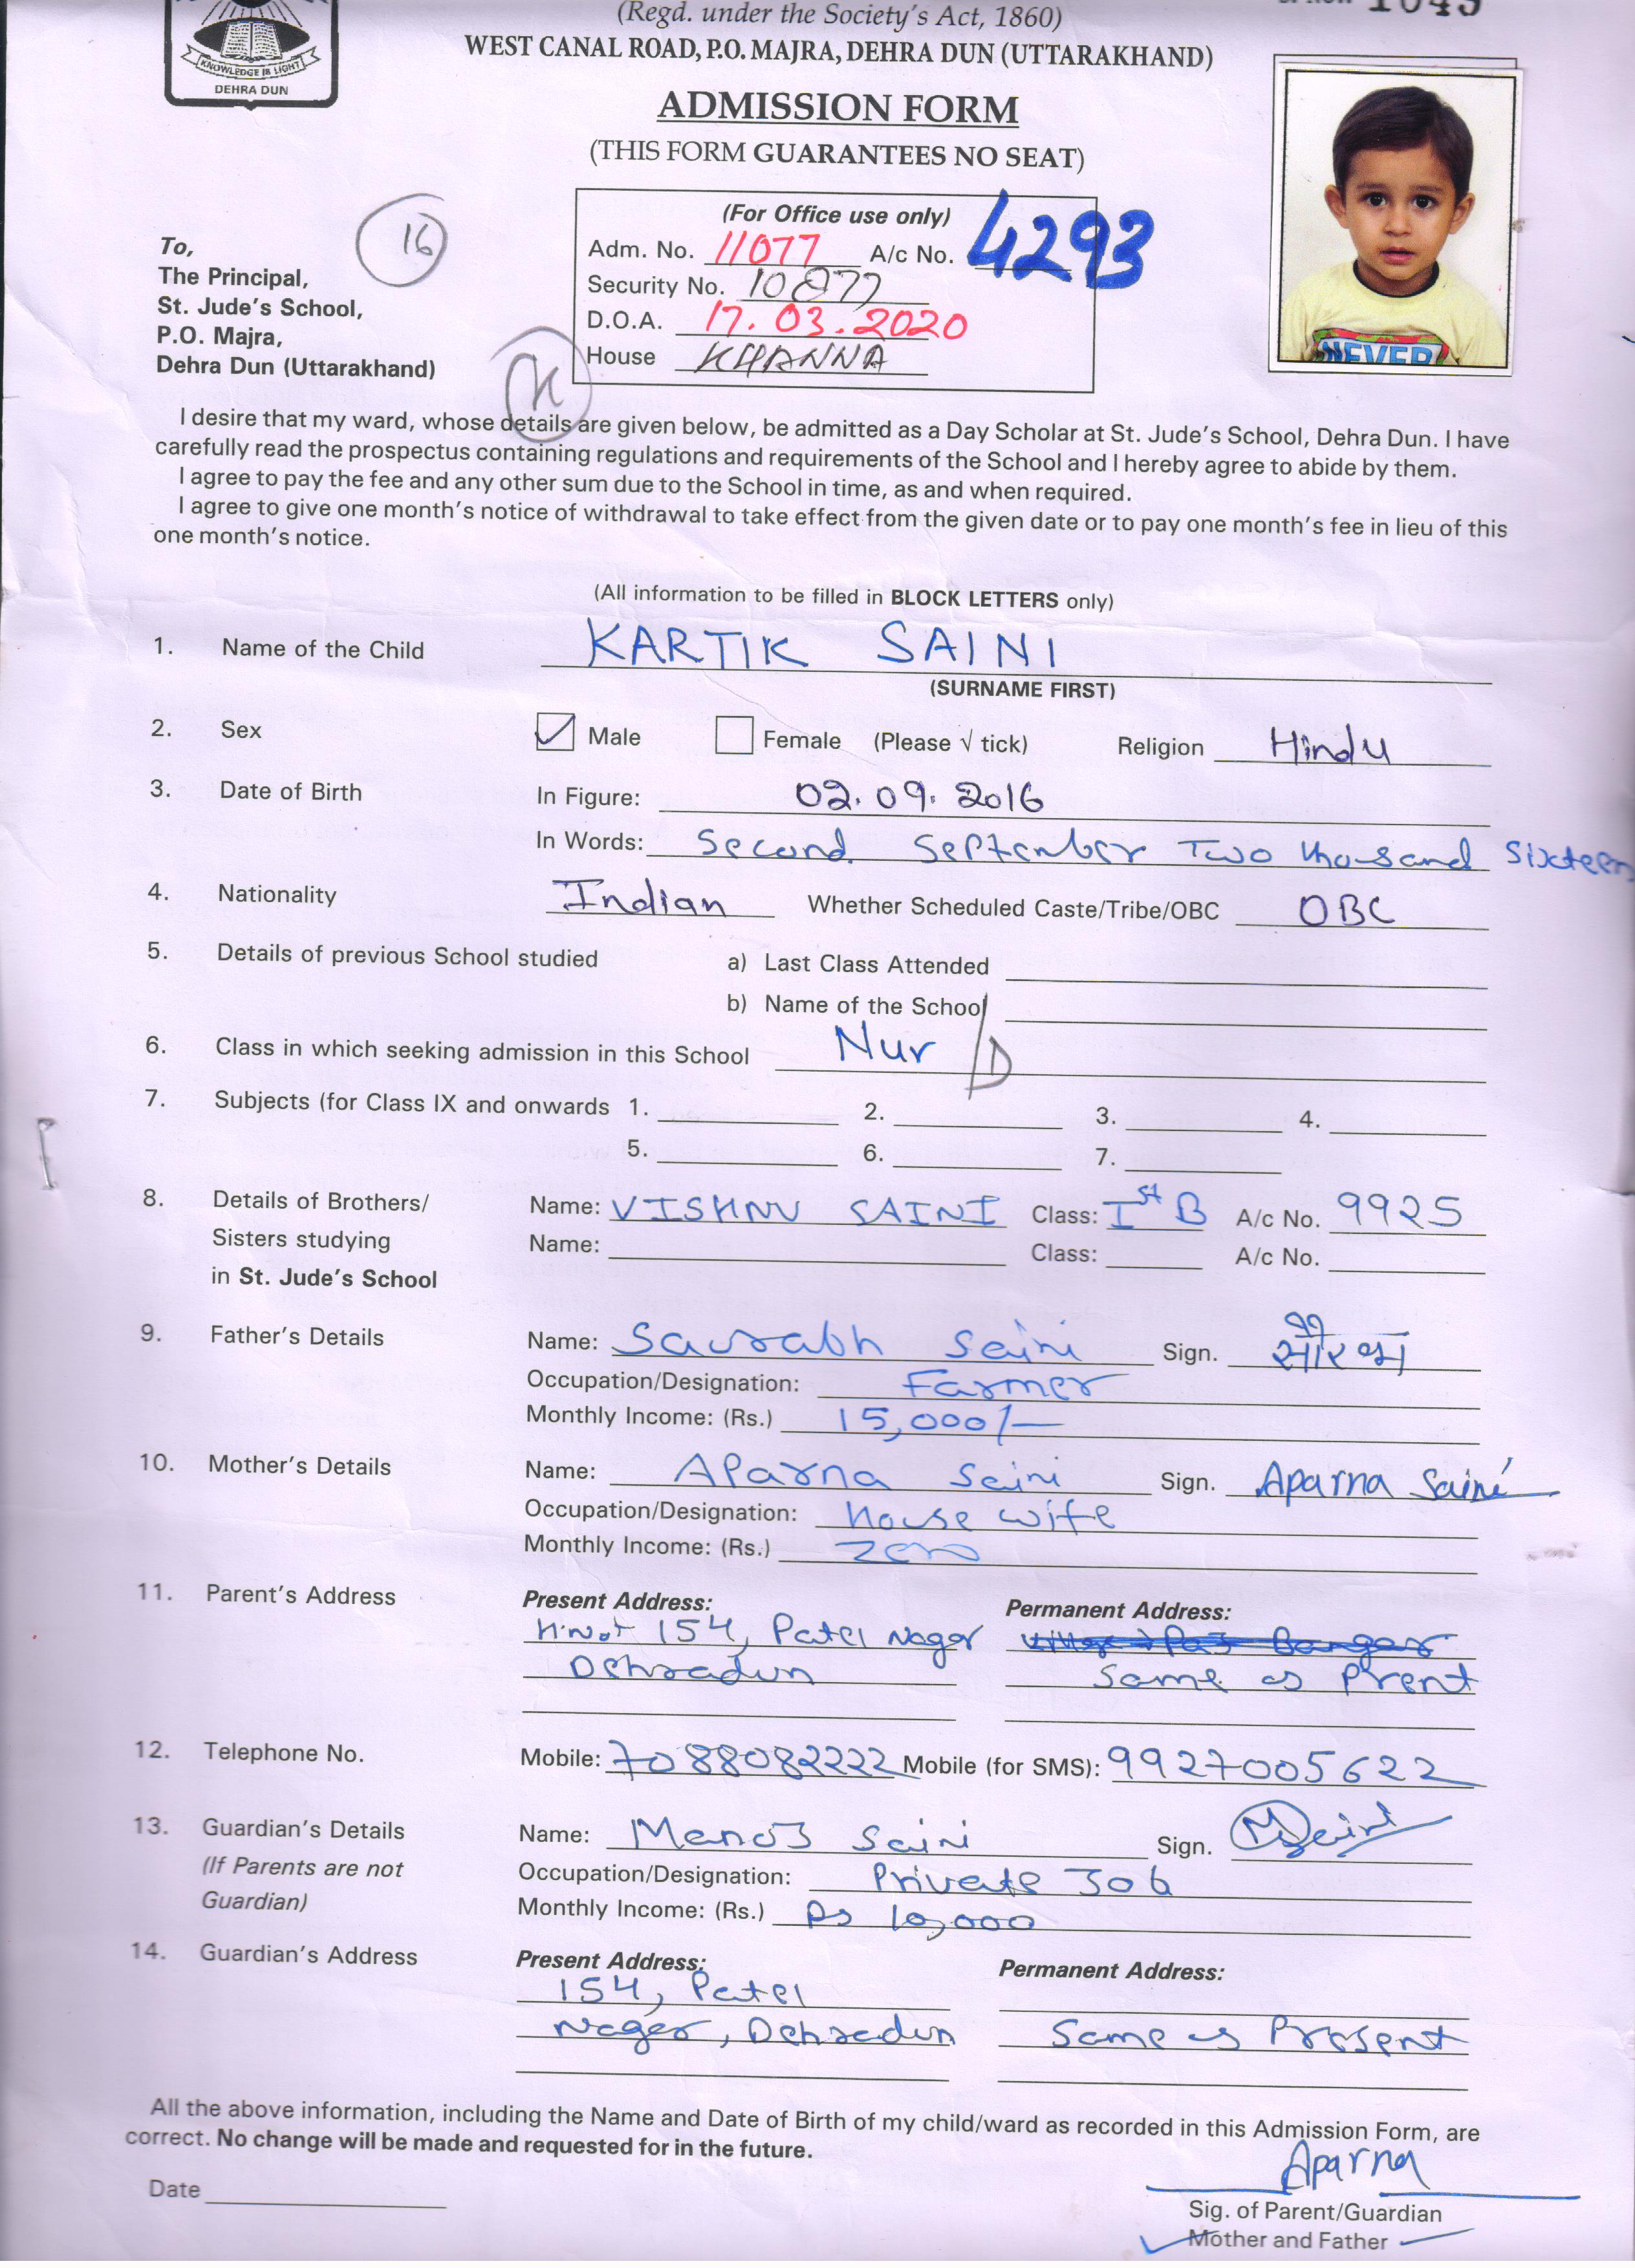 (Regd. under the Society's Act, 1860)
WEST CANAL ROAD, P.O. MAJRA, DEHRA DUN (UTTARAKHAND)
KNOWLEDGE IS LIGHT
DEHRA DUN
ADMISSION FORM
(THIS FORM GUARANTEES NO SEAT)
NEVER
16
(For Office use only)
Adm. No. 11077 A/c No. 4293
Security No. 10877
D.O.A. 17.03.2020
House KHANNA
K
To,
The Principal,
St. Jude's School,
P.O. Majra,
Dehra Dun (Uttarakhand)
I desire that my ward, whose details are given below, be admitted as a Day Scholar at St. Jude's School, Dehra Dun. I have
carefully read the prospectus containing regulations and requirements of the School and I hereby agree to abide by them.
I agree to pay the fee and any other sum due to the School in time, as and when required.
I agree to give one month's notice of withdrawal to take effect from the given date or to pay one month's fee in lieu of this
one month's notice.
(All information to be filled in BLOCK LETTERS only)
1. Name of the Child KARTIK SAINI
(SURNAME FIRST)
2. Sex Male Female (Please √ tick) Religion Hindu
3. Date of Birth In Figure: 02.09.2016
In Words: Second September Two thousand Sixteen
4. Nationality Indian Whether Scheduled Caste/Tribe/OBC OBC
5. Details of previous School studied a) Last Class Attended
b) Name of the School
6. Class in which seeking admission in this School Nur/D
7. Subjects (for Class IX and onwards 1. 2. 3. 4.
5. 6. 7.
8. Details of Brothers/ Name: VISHNU SAINI Class: Ist B A/c No. 9925
Sisters studying Name: Class: A/c No.
in St. Jude's School
9. Father's Details Name: Saurabh Saini Sign. सौरभ
Occupation/Designation: Farmer
Monthly Income: (Rs.) 15,000/-
10. Mother's Details Name: Aparna Saini Sign. Aparna Saini
Occupation/Designation: House wife
Monthly Income: (Rs.) Zero
11. Parent's Address Present Address: Permanent Address:
H.No 154, Patel Nagar
Dehradun Same as Prent
12. Telephone No. Mobile: 7088082222 Mobile (for SMS): 9927005622
13. Guardian's Details Name: Manoj Saini Sign. MSaini
(If Parents are not Occupation/Designation: Private Job
Guardian) Monthly Income: (Rs.) Rs 10,000
14. Guardian's Address Present Address: Permanent Address:
154, Patel
Nagar, Dehradun Same as Present
All the above information, including the Name and Date of Birth of my child/ward as recorded in this Admission Form, are
correct. No change will be made and requested for in the future.
Aparna
Date
Sig. of Parent/Guardian
Mother and Father